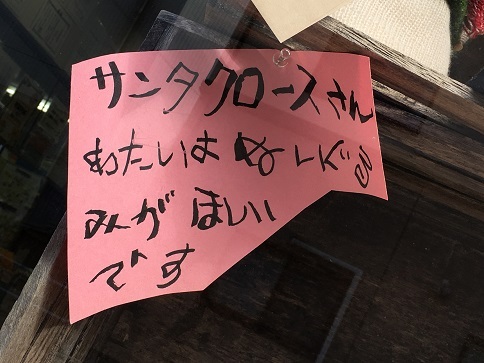 サンタクロースさん
わたしは ぬいぐる
みが ほしい
です